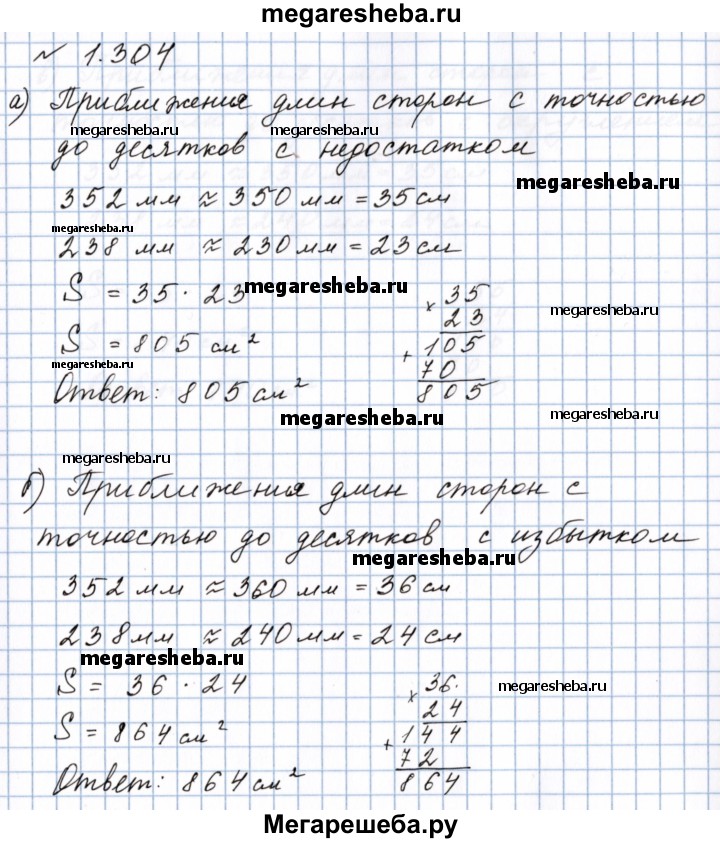 megaresheba.ru
~ 1.304
а) Приближения длин сторон с точностью
megaresheba.ru megaresheba.ru
до десятков с недостатком
megaresheba.ru
352 мм ≈ 350 мм = 35 см
megaresheba.ru
238 мм ≈ 230 мм = 23 см
S = 35 · 23
megaresheba.ru
× 35
23
megaresheba.ru
S = 805 см²
+ 105
70
805
megaresheba.ru
Ответ: 805 см²
megaresheba.ru
megaresheba.ru
megaresheba.ru
б) Приближения длин сторон с
megaresheba.ru
точностью до десятков с избытком
megaresheba.ru
352 мм ≈ 360 мм = 36 см
238 мм ≈ 240 мм = 24 см
megaresheba.ru
S = 36 · 24
× 36.
24
megaresheba.ru
S = 864 см²
+ 144
72
864
Ответ: 864 см²
Мегарешеба.ру